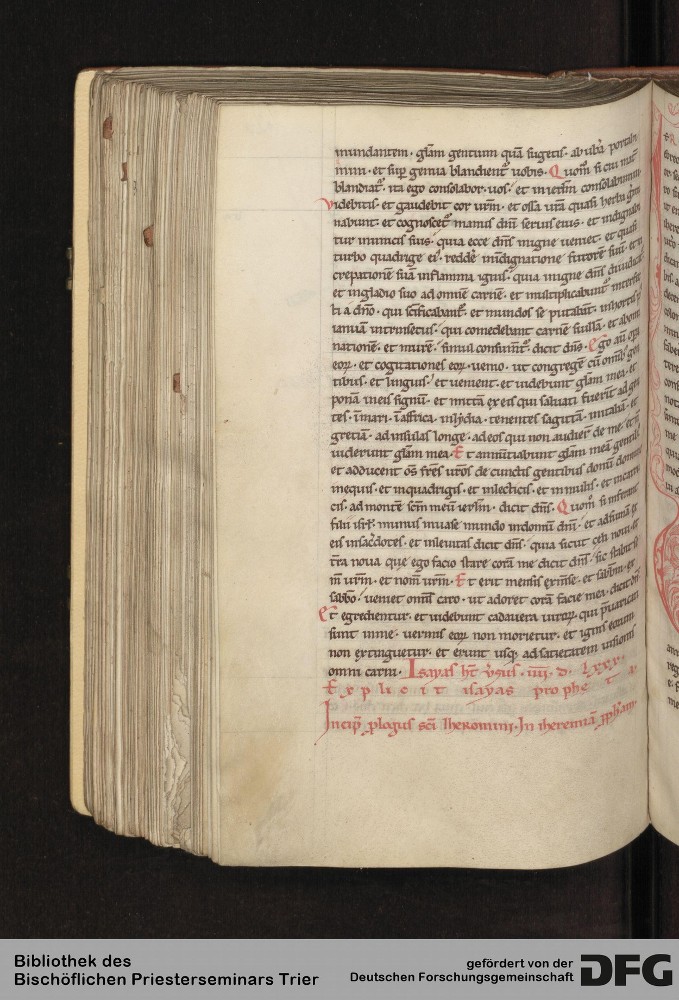 inundantem · gl̄am gentium quā sugetis · ab ub̄a portabi
mini · et sup̄ genua blandient᷑ uobis · Quom̄ si cui mat̄
blandiat᷑ · ita ego consolabor uos · et in ierl̄m consolabimini
Videbitis · et gaudebit cor urm̄ · et ossa ur̄a quasi herba gͥmi
nabunt · et cognoscet᷑ manus dn̄i seruis eius · et indignabi
tur inimicis suis · quia ecce dn̄s inigne ueniet · et quasi
turbo quadrige ei᷒ · redde᷑ inindignatione furorē suū · et in
crepationē suā inflamma ignis · quia inigne dn̄s diiudicat᷑
et ingladio suo ad omnē carnē · et multiplicabunt᷑ interfec
ti a dn̄o · qui sc̄ificabant᷑ · et mundos se putabant · inhortis p᷒
ianuā intrinsecus · qui comedebant carnē suillā · et abomi
nationē · et murē · simul consument᷑ · dicit dn̄s · Ego au̅ opa
eoꝝ · et cogitationes eoꝝ · uenio · ut congregē cū omib᷒ gen
tibus · et linguis · et uenient · et uidebunt gl̄am meā · et
ponā ineis signū · et mittā ex eis qui saluati fuerint ad gen
tes · ī mari · ī affrica · in lydia · tenentes sagittā · in italiā · et
gretiā · ad insulas longe · ad eos qui non audier̄ de me · et n̄
uiderunt gl̄am mea · Et annūtiabunt gl̄am meā gentib᷒
et adducent om̄s fr̄es ur̄os de cunctis gentibus donū domino
inequis · et inquadrigis · et inlecticis · et in mulis · et in carru
cis · ad montē sc̄m meū ierl̄m · dicit dn̄s · Quom̄ si inferant
filii isr̄l munus inuase mundo indomū dn̄i · et adsumā ex
eis insac̄dotes · et in leuitas dicit dn̄s · quia sicut celi noui · et
tr̄ra noua que ego facio stare corā me dicit dn̄s · sic stabit se
m̄ urm̄ · et nom̄ urm̄ · Et erit mensis exm̄se · et sabb̄m · ex
sabb̄o · ueniet omnis caro · ut adoret corā facie mea · dicit dn̄s
Et egredientur · et uidebunt cadauera uiroꝝ · qui p̄uaricati
sunt in me · uermis eoꝝ non morietur · et ignis eorum
non extinguetur · et erunt usq; ad satietatem uisionis
omni carni · Isayas ht̄ v̄sus · iiii · d · lxxx ·
Explicit isayas prophet a
Incip̄ p̄logus sc̄i Iheronimi · In iheremiā p̄pham
Bibliothek des
Bischöflichen Priesterseminars Trier
gefördert von der
Deutschen Forschungsgemeinschaft
DFG